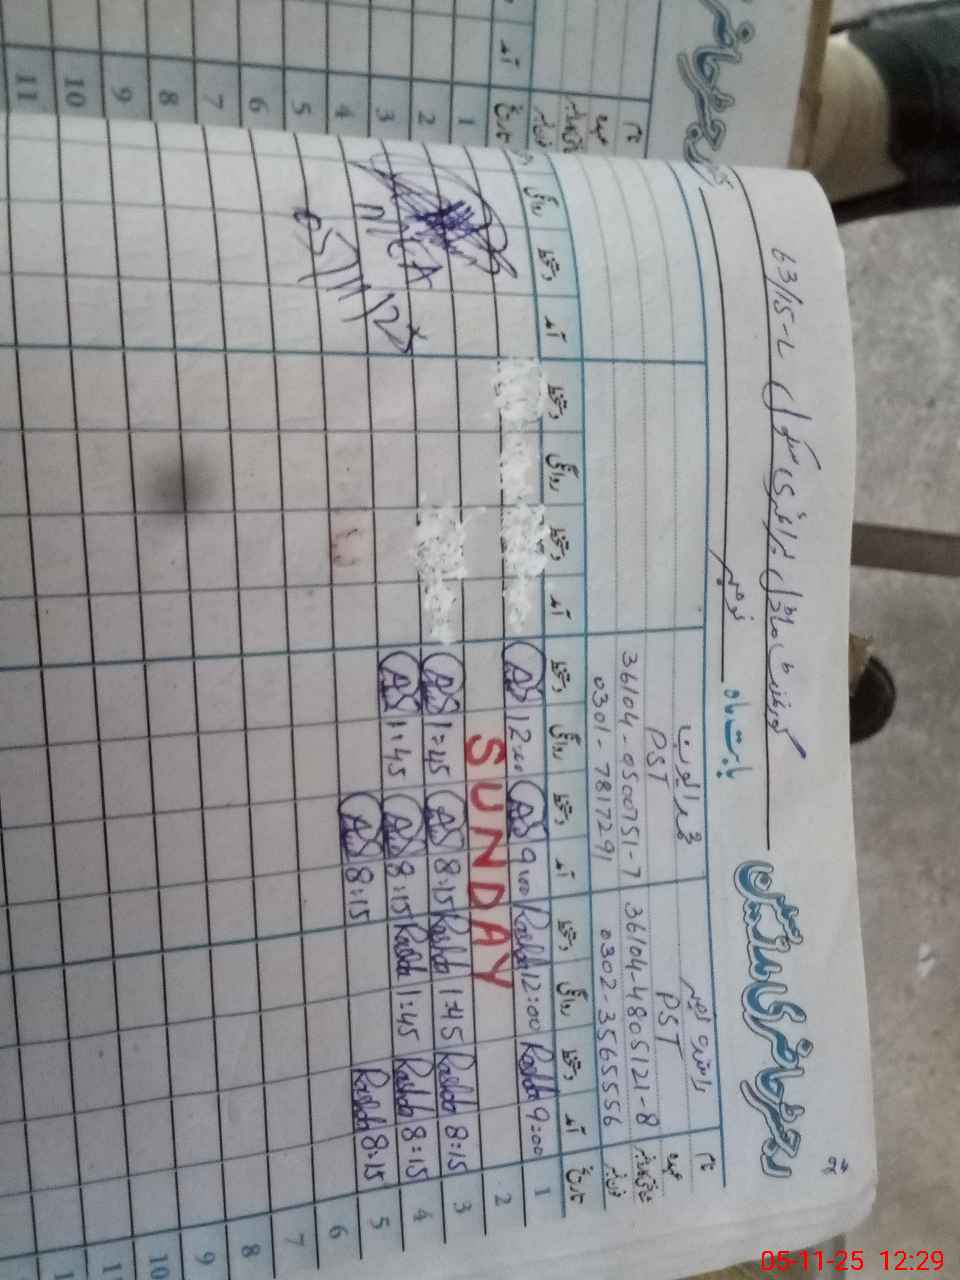 رجسٹر حاضری مدرسین
گورنمنٹ ماڈل پرائمری سکول 63/15-L
بابت ماہ نومبر
نام
عہدہ PST PST
شناختی کارڈ نمبر 36104-4805121-8 36104-0500751-7
فون نمبر 0302-3565556 0301-7817291
تاریخ آمد دستخط روانگی دستخط آمد دستخط روانگی دستخط آمد دستخط روانگی دستخط آمد دستخط روانگی
1 9:00 Rashda 12:00 Rashda 9:00 AS 12:00 AS
2 SUNDAY
3 8:15 Rashda 1:45 Rashda 8:15 AS 1:45 AS
4 8:15 Rashda 1:45 Rashda 8:15 AS 1:45 AS
5 8:15 Rashda 8:15 AS
6
7
8
9
10
11
05/11/25
رجسٹر حاضر
نام
عہدہ
تاریخ
آمد
1
2
3
4
5
6
7
8
9
10
11
05-11-25 12:29